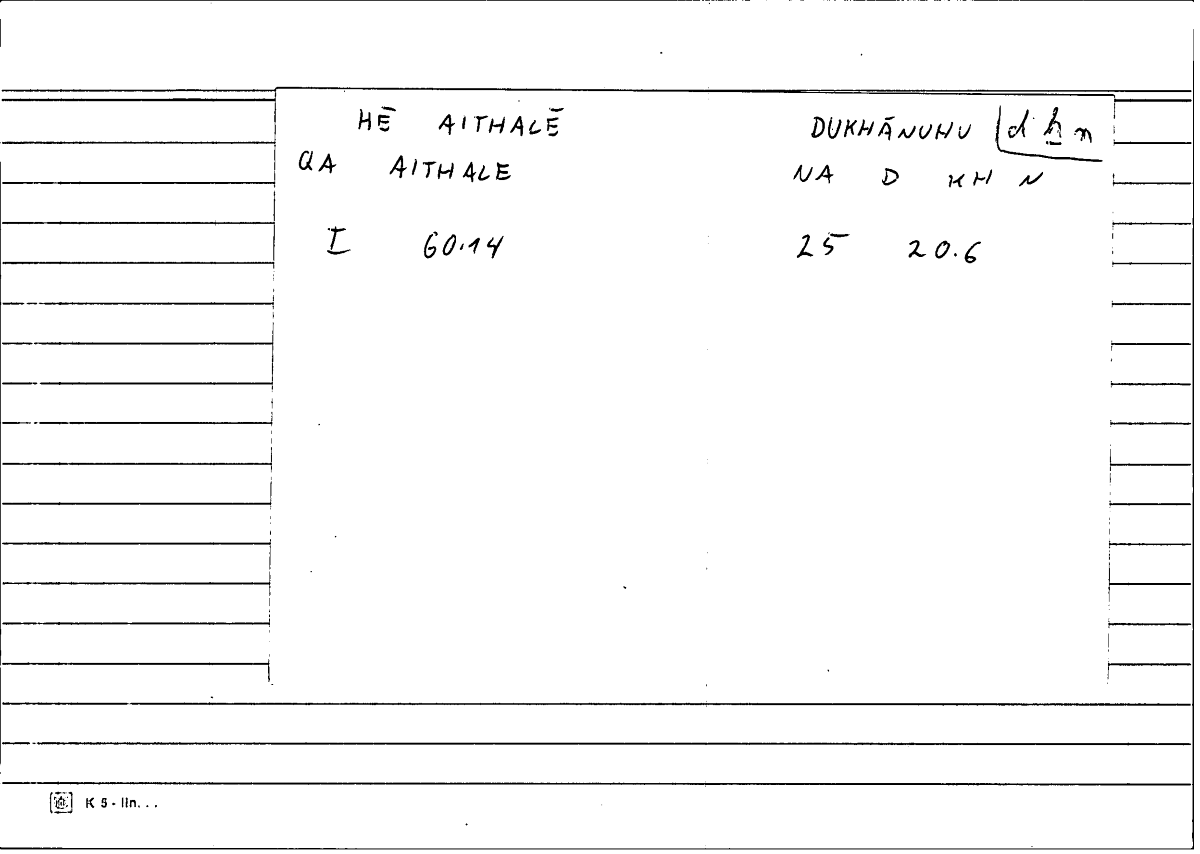 HĒ AITHALĒ DUKHĀNUHU d ḫ n
QA AITHALE NA D KH N
I 60.14 25 20.6
K 5 - lin. . .